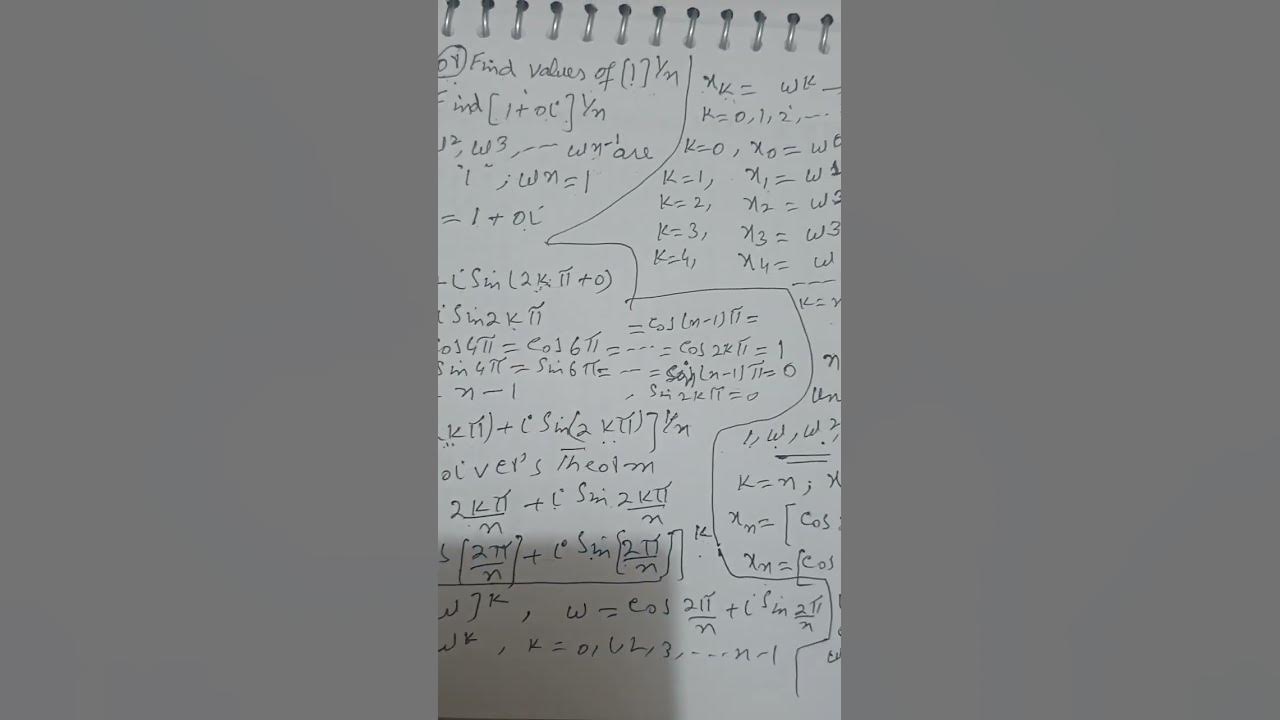 or Find values of [1]^1/n
Find [1+0i]^1/n
ω², ω3, --- ωn-1 are
"1" ; ωn = 1
= 1 + 0i
+ i Sin (2kπ+0)
i Sin 2kπ
Cos 4π = Cos 6π = --- = Cos 2kπ = 1
= Cos (n-1)π =
Sin 4π = Sin 6π = --- = Sin (n-1)π = 0
n-1 , Sin 2kπ = 0
2kπ) + i Sin (2kπ)]^1/n
oiver's Theorm
2kπ/n + i Sin 2kπ/n
s [2π/n] + i Sin [2π/n]]^k
ω]^k , ω = Cos 2π/n + i Sin 2π/n
ω^k , k = 0, 1, 2, 3, ---- n-1
xk = ωk
k=0, 1, 2, ...
k=0, x0 = ω0
k=1, x1 = ω1
k=2, x2 = ω3
k=3, x3 = ω3
k=4, x4 = ω
----
k=n
n
un
1, ω, ω2,
k=n ; x
xn = [Cos
xn = [Cos